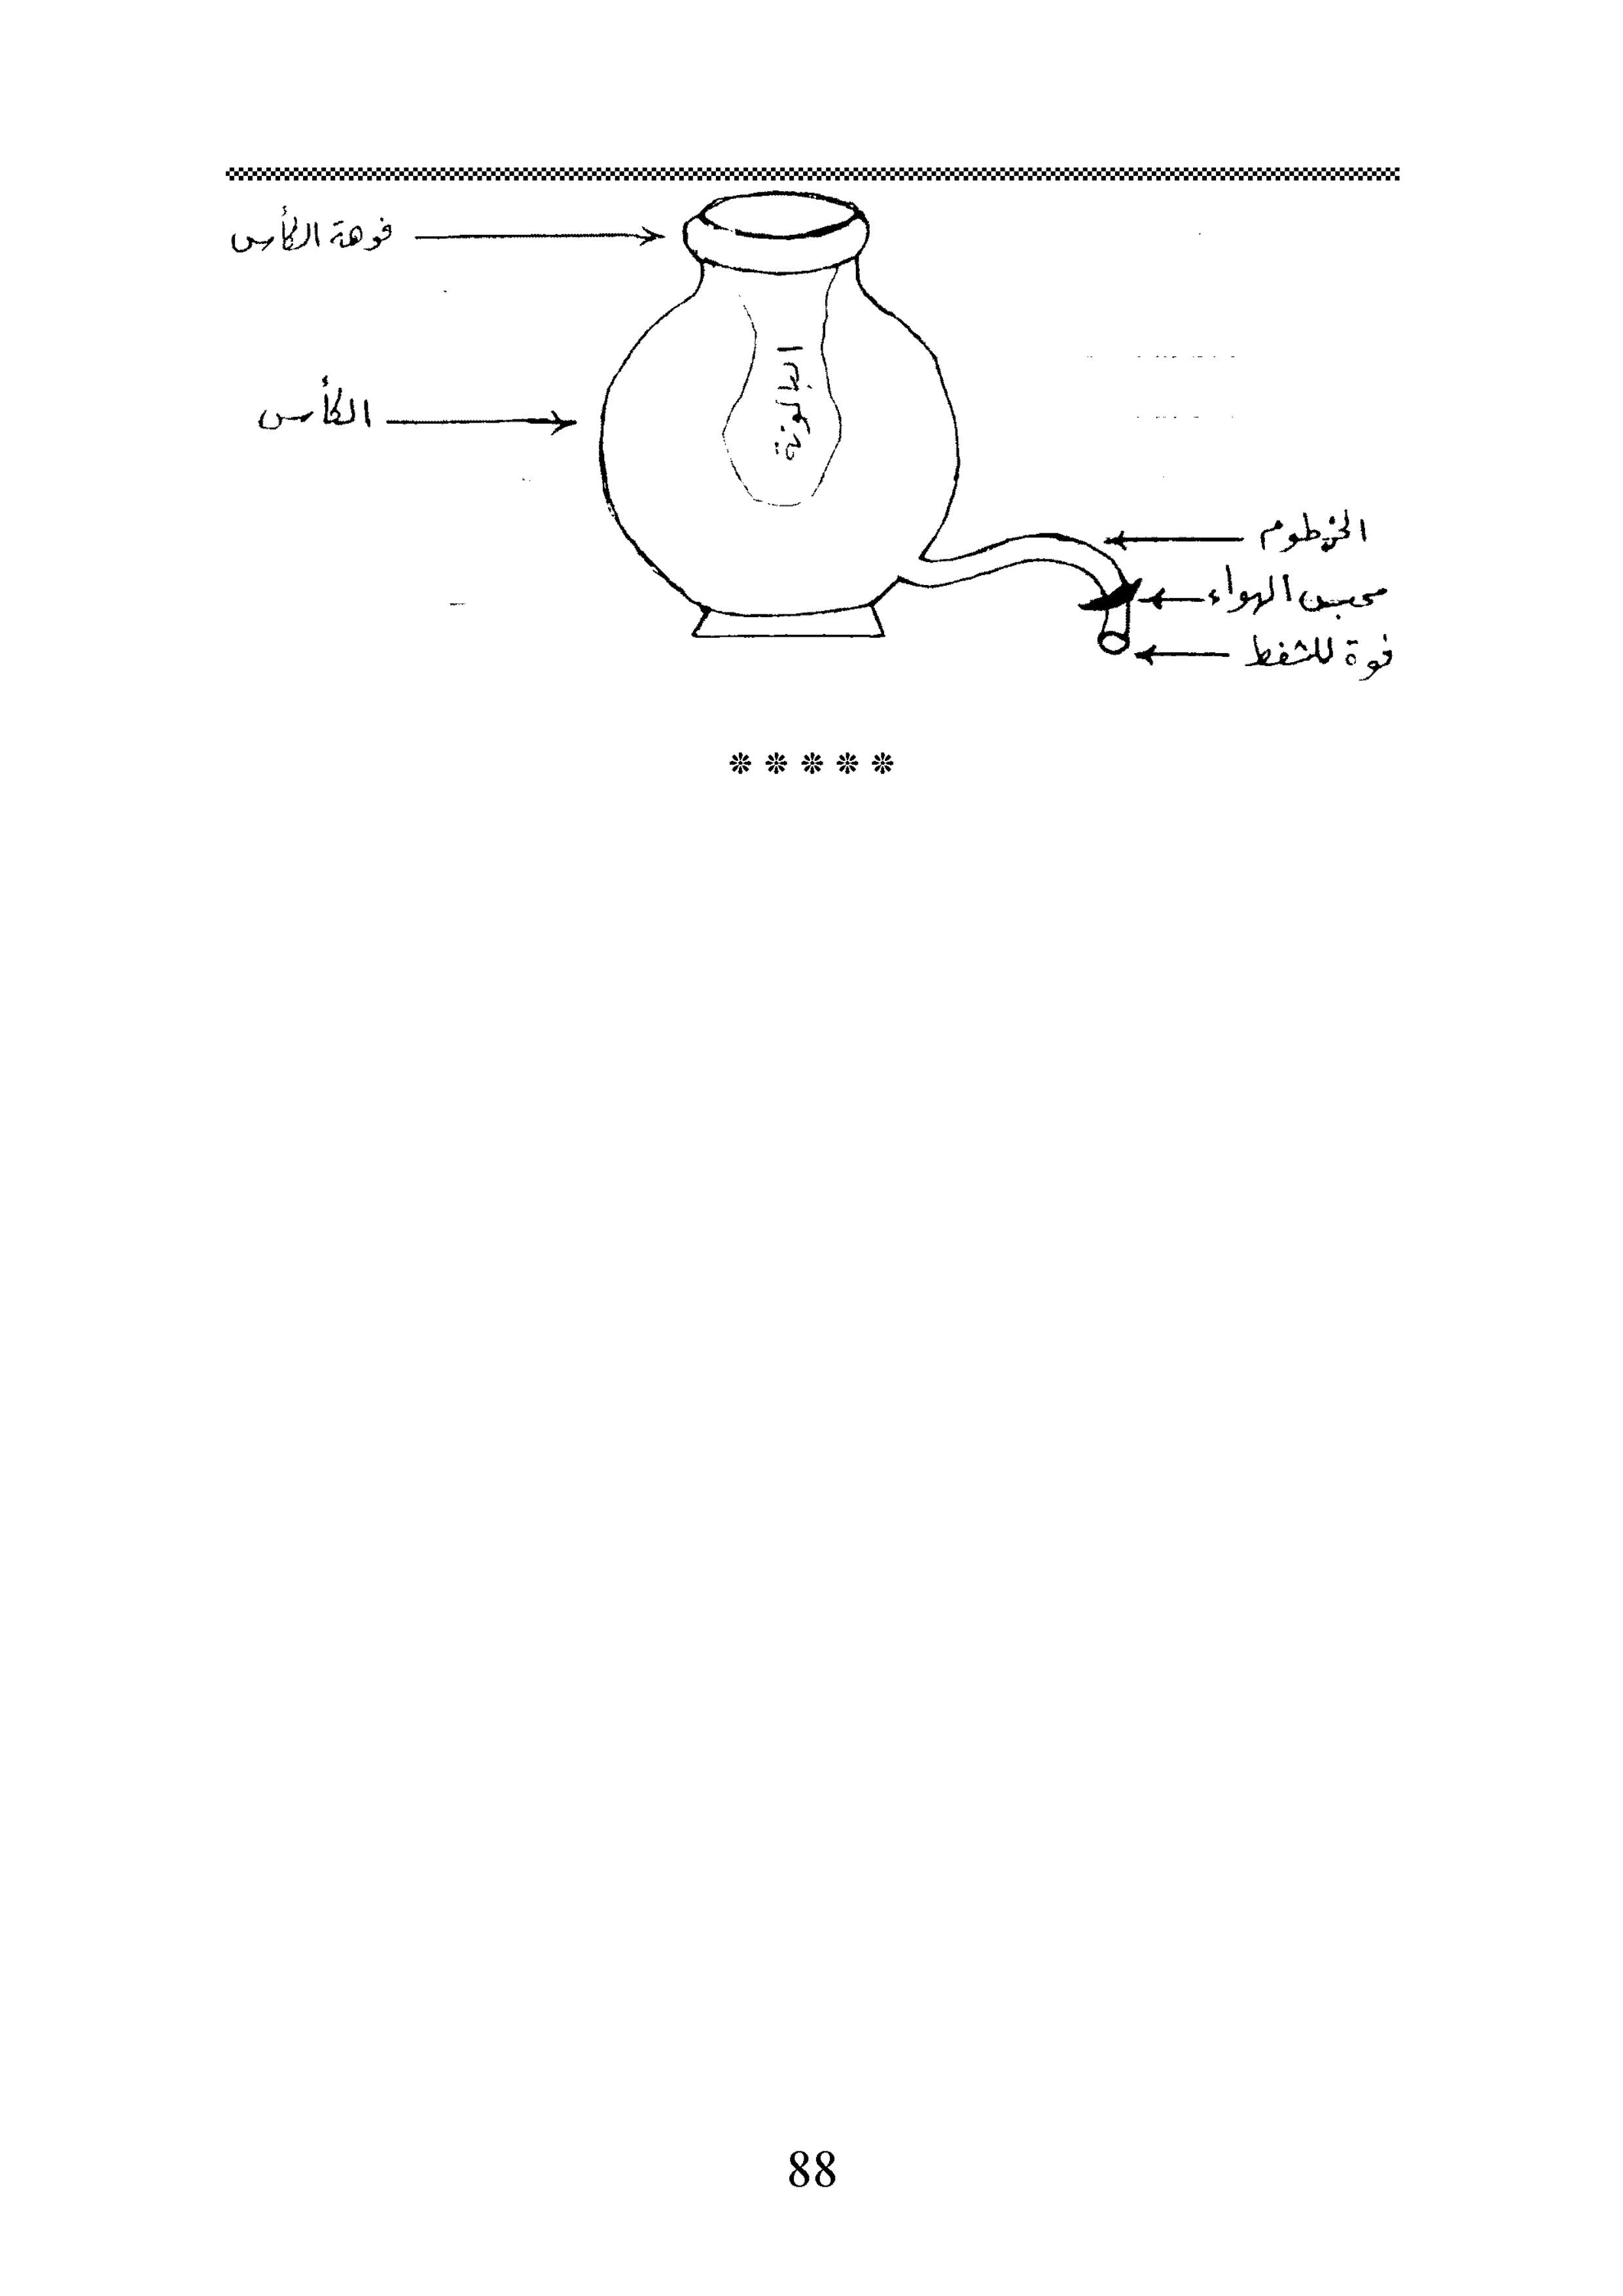 فوهة الكأس
الكأس
البالونة
الخرطوم
محبس الهواء
فوة للشفط
*****
88